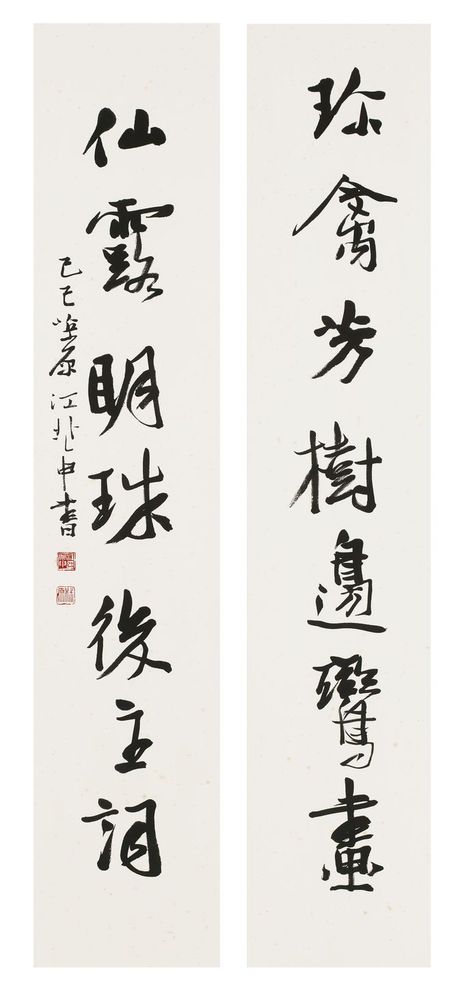 珍禽芳樹邊鸞畫
仙露明珠後主詞
己巳茮原江兆申書